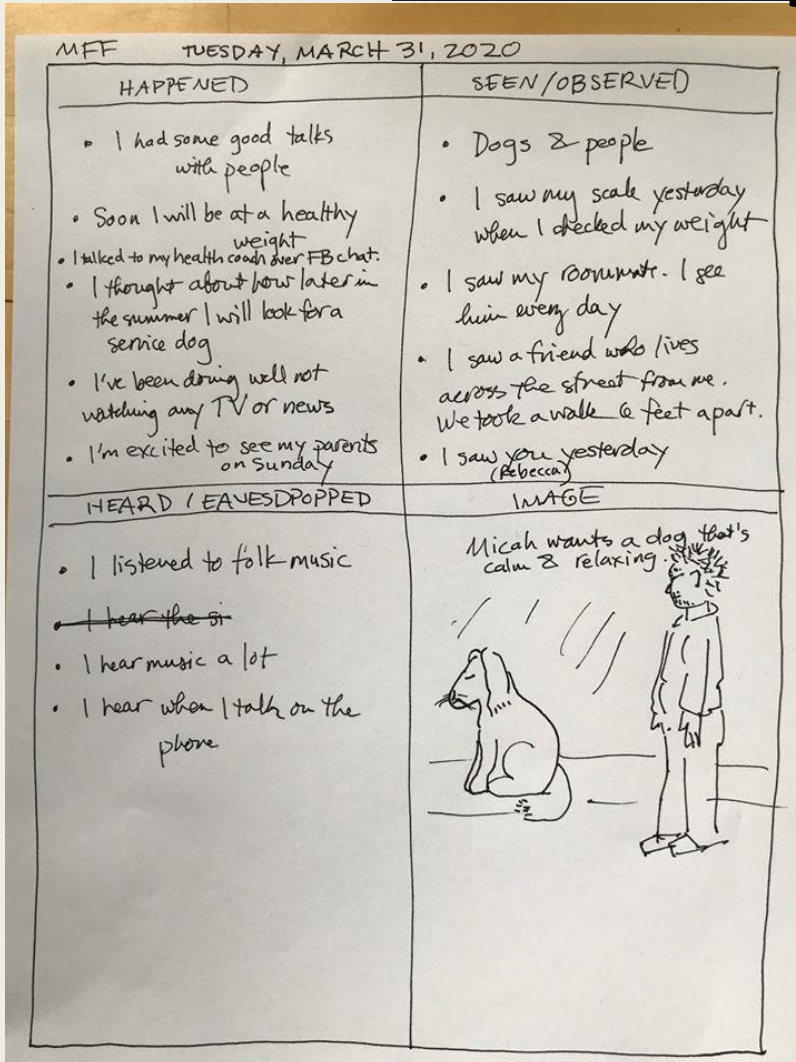 MFF TUESDAY, MARCH 31, 2020
HAPPENED
• I had some good talks
with people
• Soon I will be at a healthy
weight
• I talked to my health coach over FB chat.
• I thought about how later in
the summer I will look for a
service dog
• I've been doing well not
watching any TV or news
• I'm excited to see my parents
on Sunday
SEEN/OBSERVED
• Dogs & people
• I saw my scale yesterday
when I checked my weight
• I saw my roommate. I see
him every day
• I saw a friend who lives
across the street from me.
We took a walk 6 feet apart.
• I saw you yesterday
(Rebecca)
HEARD / EAVESDPOPPED
• I listened to folk music
• I hear the si
• I hear music a lot
• I hear when I talk on the
phone
IMAGE
Micah wants a dog that's
calm & relaxing.